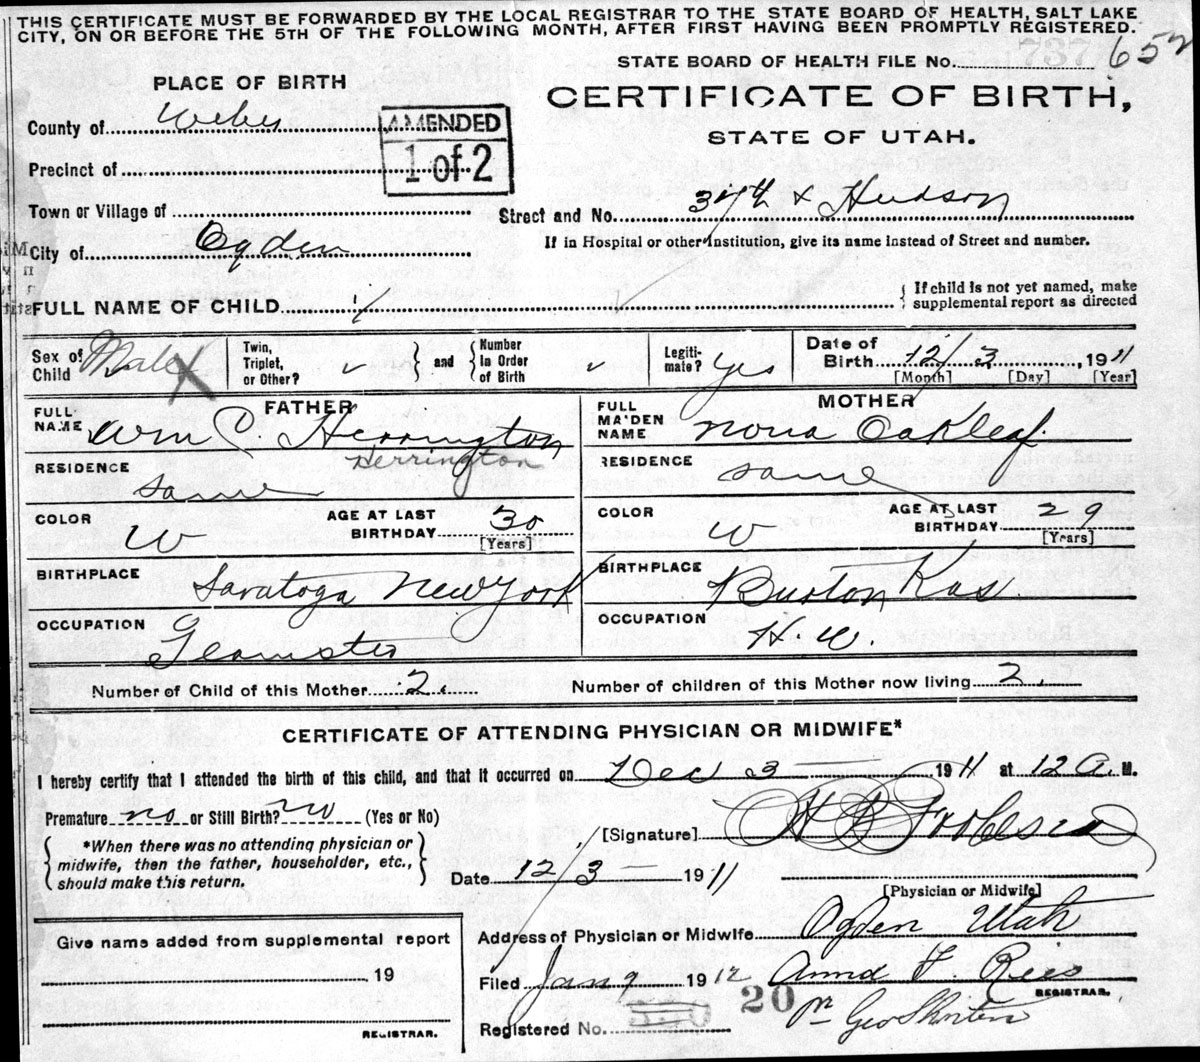 THIS CERTIFICATE MUST BE FORWARDED BY THE LOCAL REGISTRAR TO THE STATE BOARD OF HEALTH, SALT LAKE
CITY, ON OR BEFORE THE 5TH OF THE FOLLOWING MONTH, AFTER FIRST HAVING BEEN PROMPTLY REGISTERED.
STATE BOARD OF HEALTH FILE No. 737 652
PLACE OF BIRTH
CERTIFICATE OF BIRTH,
STATE OF UTAH.
County of Weber
AMENDED
1 of 2
Precinct of
Town or Village of
Street and No. 37th & Hudson
City of Ogden
If in Hospital or other Institution, give its name instead of Street and number.
FULL NAME OF CHILD
{ If child is not yet named, make
supplemental report as directed
Sex of Child Male X
Twin, Triplet, or Other? ✓ } and { Number In Order of Birth ✓
Legiti-mate? Yes
Date of Birth 12/3, 1911
[Month] [Day] [Year]
FATHER
FULL NAME Wm C. Herrington
Herrington
RESIDENCE same
COLOR W
AGE AT LAST BIRTHDAY 30
[Years]
BIRTHPLACE Saratoga New York
OCCUPATION Teamster
MOTHER
FULL MAIDEN NAME Nona Oakleaf
RESIDENCE same
COLOR W
AGE AT LAST BIRTHDAY 29
[Years]
BIRTHPLACE Burton Kas.
OCCUPATION H. W.
Number of Child of this Mother 2.
Number of children of this Mother now living 2.
CERTIFICATE OF ATTENDING PHYSICIAN OR MIDWIFE*
I hereby certify that I attended the birth of this child, and that it occurred on Dec 3 1911 at 12 A. M.
Premature no or Still Birth? no (Yes or No)
[Signature] H B
*When there was no attending physician or
midwife, then the father, householder, etc.,
should make this return.
Date 12/3 1911
[Physician or Midwife]
Address of Physician or Midwife Ogden Utah
Give name added from supplemental report
19
REGISTRAR.
Filed Jan 9 1912 Anna F. Rees
REGISTRAR.
Registered No. 20
pr Geo Shorten